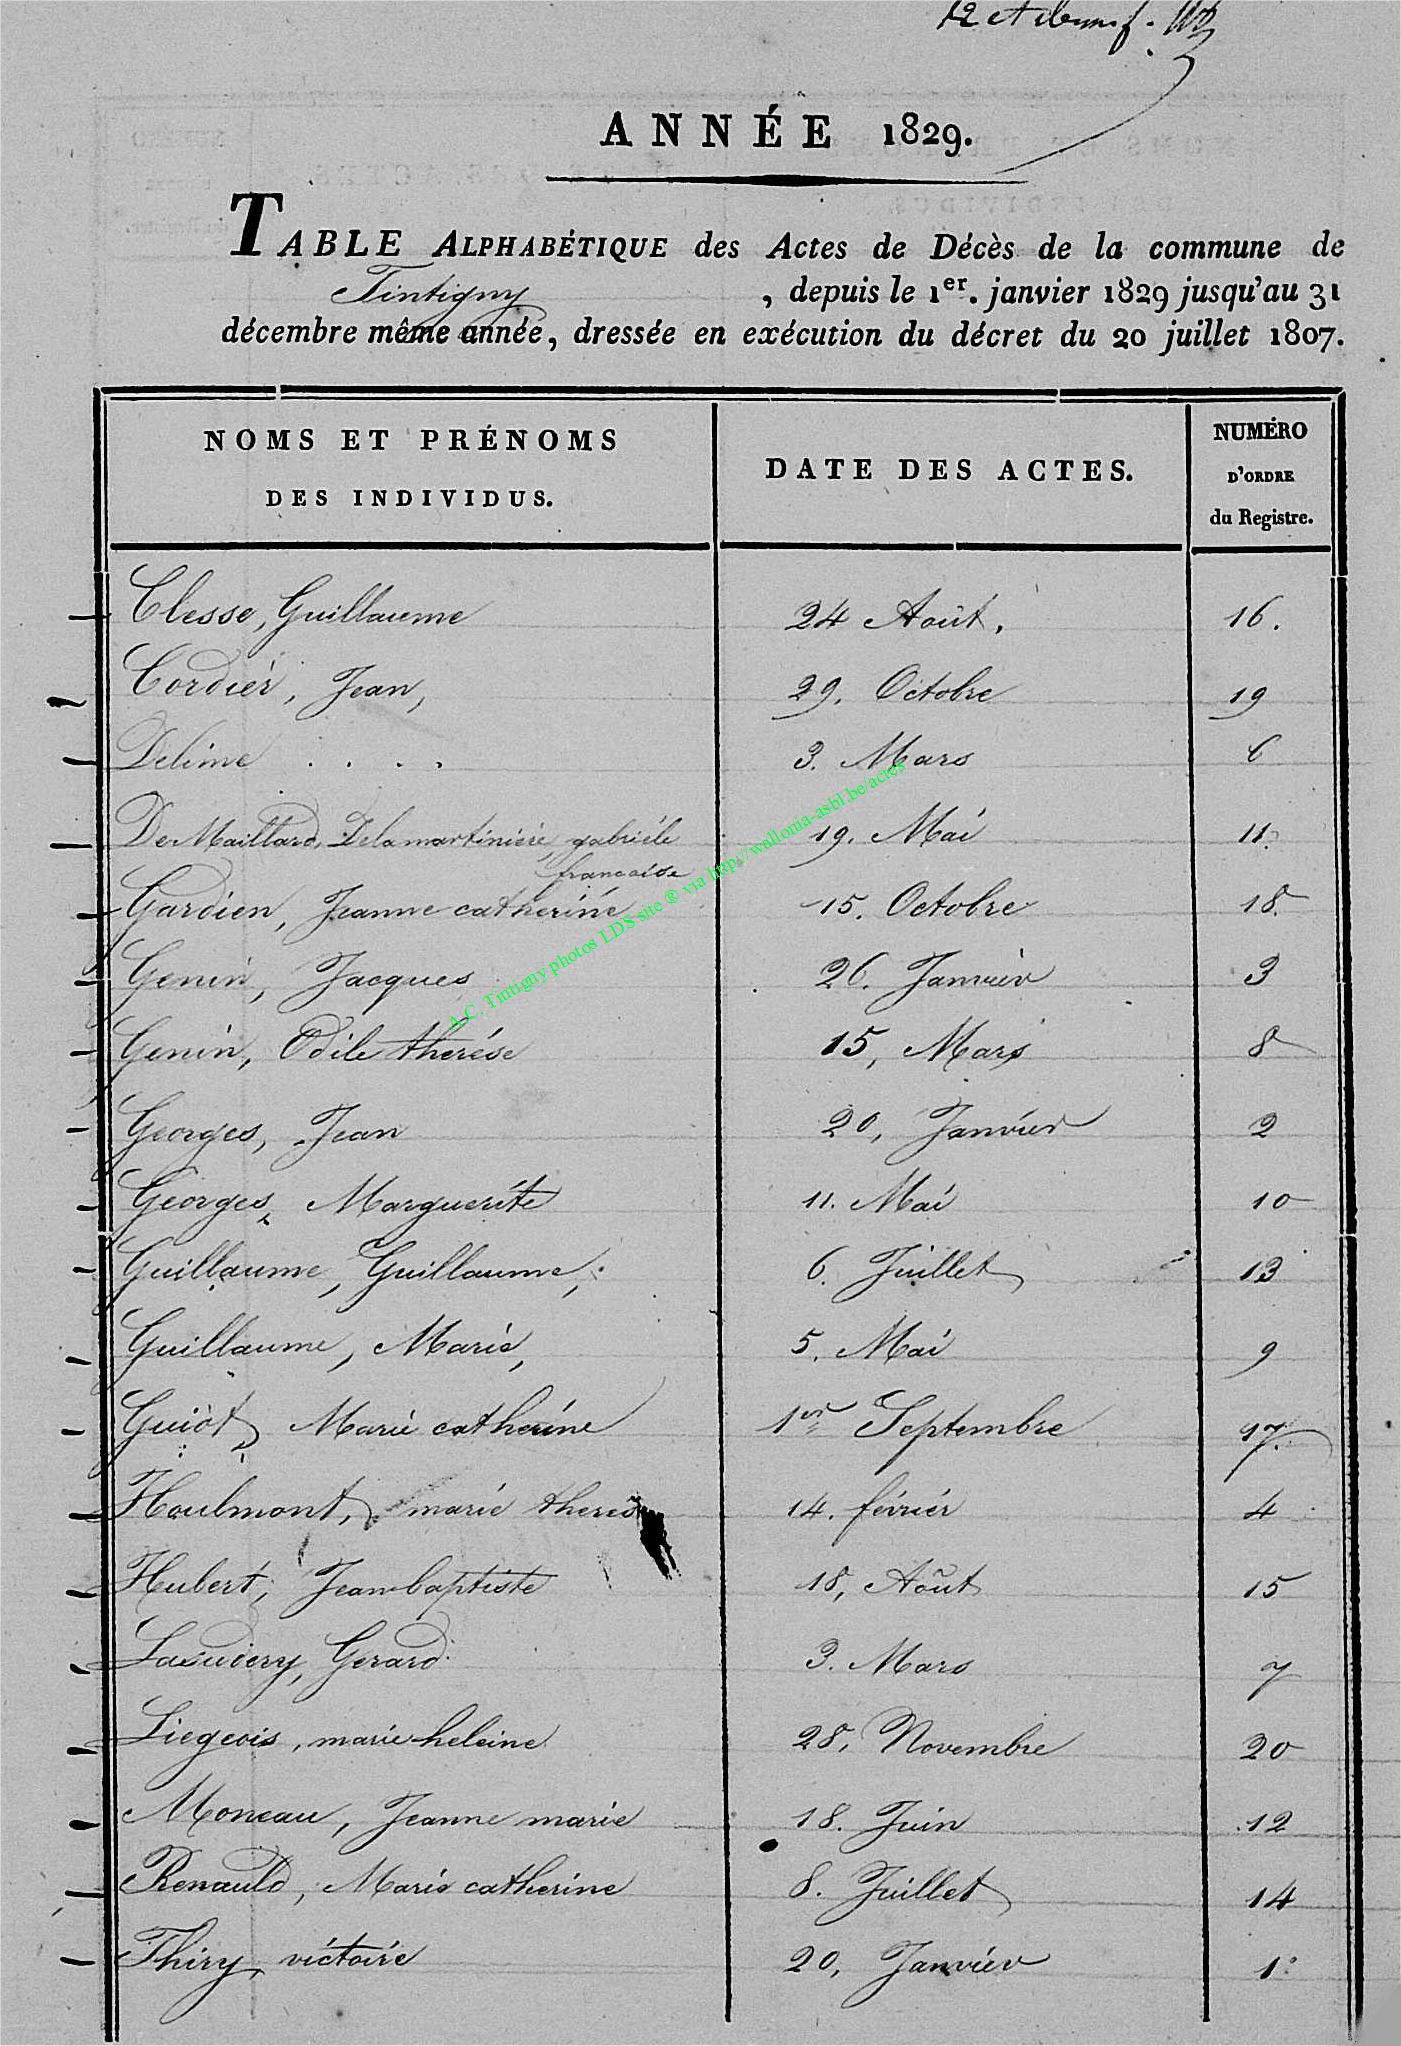 ANNÉE 1829.
TABLE ALPHABÉTIQUE des Actes de Décès de la commune de
Tintigny , depuis le 1er. janvier 1829 jusqu'au 31
décembre même année, dressée en exécution du décret du 20 juillet 1807.
NOMS ET PRÉNOMS
DES INDIVIDUS.
DATE DES ACTES.
NUMÉRO
D'ORDRE
du Registre.
Clesse, Guillaume 24 Août, 16.
Cordier, Jean, 29, Octobre 19
Delime . . . . 3. Mars 6
De Maillard, Delamartinière, gabriéle 19. Mai 11.
francaise
Gardien, Jeanne catherine 15. Octobre 18.
Genin, Jacques 26. Janvier 3
Genin, Odile thérése 15, Mars 8
Georges, Jean 20, Janvier 2
Georges, Marguerite 11. Mai 10
Guillaume, Guillaume, 6. Juillet 13
Guillaume, Marie, 5. Mai 9
Guiot, Marie catherine 1er Septembre 17.
Houlmont, marie 14. février 4
Hubert, Jean baptiste 18, Août 15
Gerard 3. Mars 7
Liegeois, marie heleine 28, Novembre 20
Moneau, Jeanne marie 18. Juin 12
Renauld, Marie catherine 8. Juillet 14
Thiry, victoire 20, Janvier 1
A.C. Tintigny photos LDS site ® via http://wallonia-asbl.be/actes